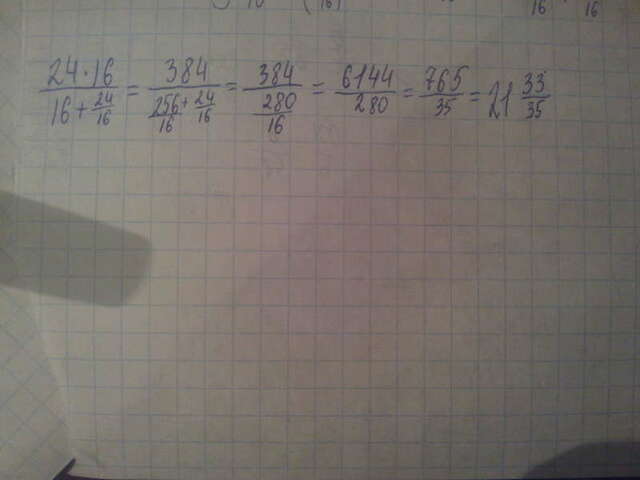 16) 16 16
24·16/(16+24/16) = 384/(256/16+24/16) = 384/(280/16) = 6144/280 = 765/35 = 21 33/35